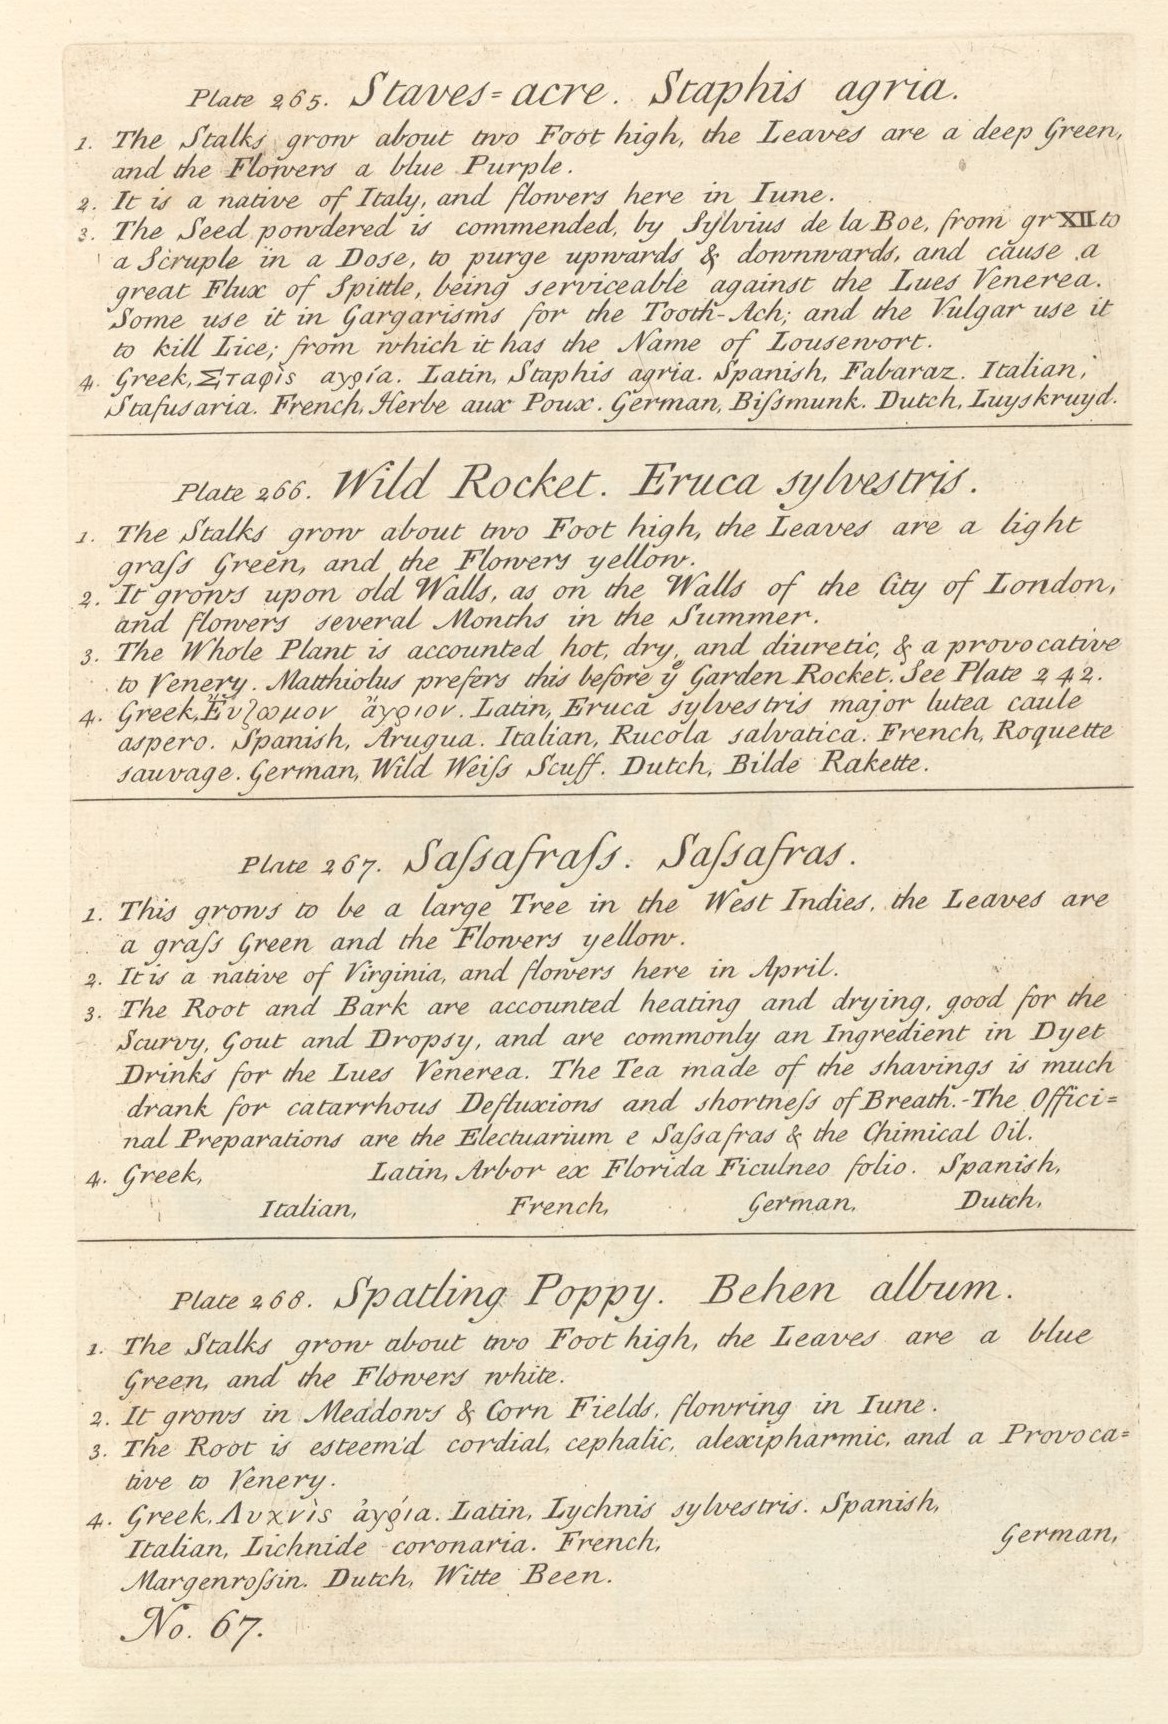 Plate 265. Staves=acre. Staphis agria.
1. The Stalks grow about two Foot high, the Leaves are a deep Green,
and the Flowers a blue Purple.
2. It is a native of Italy, and flowers here in Iune.
3. The Seed powdered is commended, by Sylvius de la Boe, from gr XII to
a Scruple in a Dose, to purge upwards & downwards, and cause a
great Flux of Spittle, being serviceable against the Lues Venerea.
Some use it in Gargarisms for the Tooth-Ach; and the Vulgar use it
to kill Lice; from which it has the Name of Lousewort.
4. Greek, Σταφὶς αγρία. Latin, Staphis agria. Spanish, Fabaraz. Italian,
Stafusaria. French, Herbe aux Poux. German, Biſsmunk. Dutch, Luyskruyd.
Plate 266. Wild Rocket. Eruca sylvestris.
1. The Stalks grow about two Foot high, the Leaves are a light
graſs Green, and the Flowers yellow.
2. It grows upon old Walls, as on the Walls of the City of London,
and flowers several Months in the Summer.
3. The Whole Plant is accounted hot, dry, and diuretic, & a provocative
to Venery. Matthiolus prefers this before ẏ Garden Rocket. See Plate 242.
4. Greek, Ἔυζωμον ἄγριον. Latin, Eruca sylvestris major lutea caule
aspero. Spanish, Arugua. Italian, Rucola salvatica. French, Roquette
sauvage. German, Wild Weiſs Scuff. Dutch, Bilde Rakette.
Plate 267. Saſsafraſs. Saſsafras.
1. This grows to be a large Tree in the West Indies, the Leaves are
a graſs Green and the Flowers yellow.
2. It is a native of Virginia, and flowers here in April.
3. The Root and Bark are accounted heating and drying, good for the
Scurvy, Gout and Dropsy, and are commonly an Ingredient in Dyet
Drinks for the Lues Venerea. The Tea made of the shavings is much
drank for catarrhous Defluxions and shortneſs of Breath.-The Offici=
nal Preparations are the Electuarium e Saſsafras & the Chimical Oil.
4. Greek, Latin, Arbor ex Florida Ficulneo folio. Spanish,
Italian, French, German, Dutch,
Plate 268. Spatling Poppy. Behen album.
1. The Stalks grow about two Foot high, the Leaves are a blue
Green, and the Flowers white.
2. It grows in Meadows & Corn Fields, flowring in Iune.
3. The Root is esteem'd cordial, cephalic, alexipharmic, and a Provoca=
tive to Venery.
4. Greek, Λυχνὶς ἀγρία. Latin, Lychnis sylvestris. Spanish,
Italian, Lichnide coronaria. French, German,
Margenroſsin. Dutch, Witte Been.
No. 67.